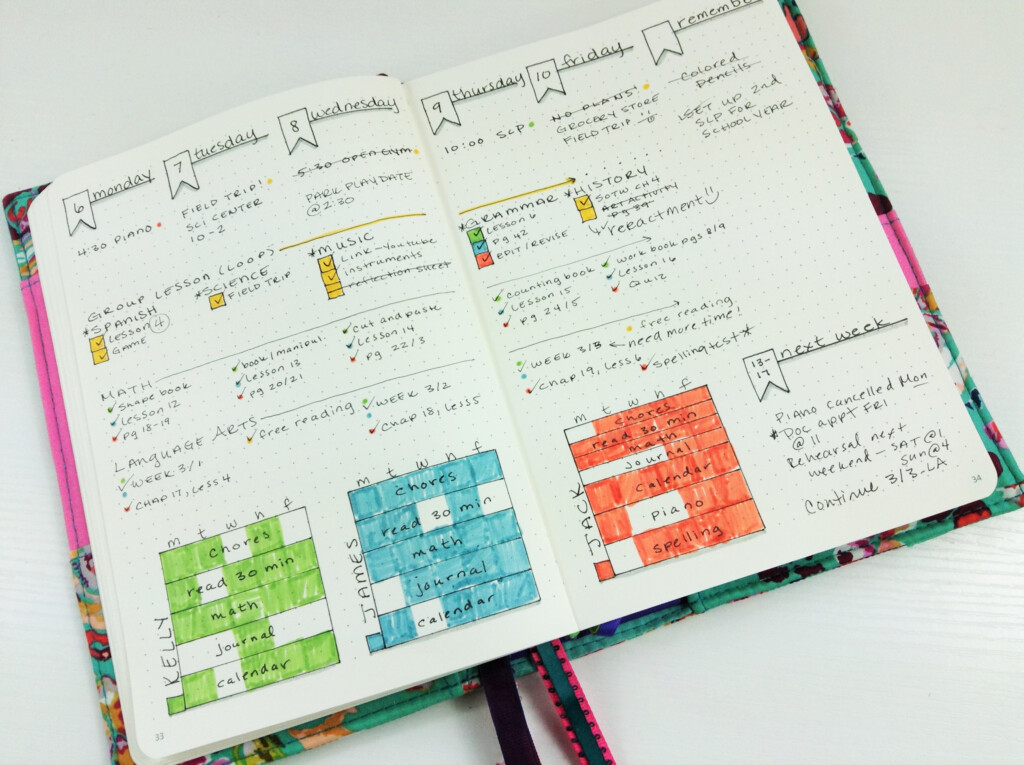 6 monday
4:30 PIANO
7 tuesday
FIELD TRIP!
SCI CENTER
10-2
8 wednesday
5:30 OPEN GYM
PARK PLAYDATE
@2:30
GROUP LESSON (LOOP)
*SPANISH
Lesson 4
GAME
*SCIENCE
FIELD TRIP
*MUSIC
Link-Youtube
instruments
reflection sheet
MATH
shape book
Lesson 12
pg 18-19
book/manipul
Lesson 13
pg 20/21
cut and paste
Lesson 14
pg 22/3
LANGUAGE ARTS
WEEK 3/1
CHAP 17, Less 4
free reading
WEEK 3/2
Chap 18, Less 5
m t w h f
KELLY
chores
read 30 min
math
journal
calendar
m t w h f
JAMES
chores
read 30 min
math
journal
calendar
33
9 thursday
10:00 SLP
10 friday
NO PLANS!
GROCERY STORE
FIELD TRIP
remember
colored
pencils
SET UP 2nd
SLP FOR
SCHOOL YEAR
*GRAMMAR
Lesson 6
pg 42
EDIT/REVISE
*HISTORY
SOTW CH 4
ART ACTIVITY
pg 39
↳ reeactment
counting book
Lesson 15
pg 24/5
work book pgs 8/9
Lesson 16
Quiz
WEEK 3/3 ← need more time!
Chap 19, Less 6
free reading
spelling test *
m t w h f
JACK
chores
read 30 min
math
journal
calendar
piano
spelling
13-17 next week
Piano cancelled Mon
* Doc appt FRI
@ 11
Rehearsal next
weekend - SAT@1
Sun@4
Continue 3/3-LA
34